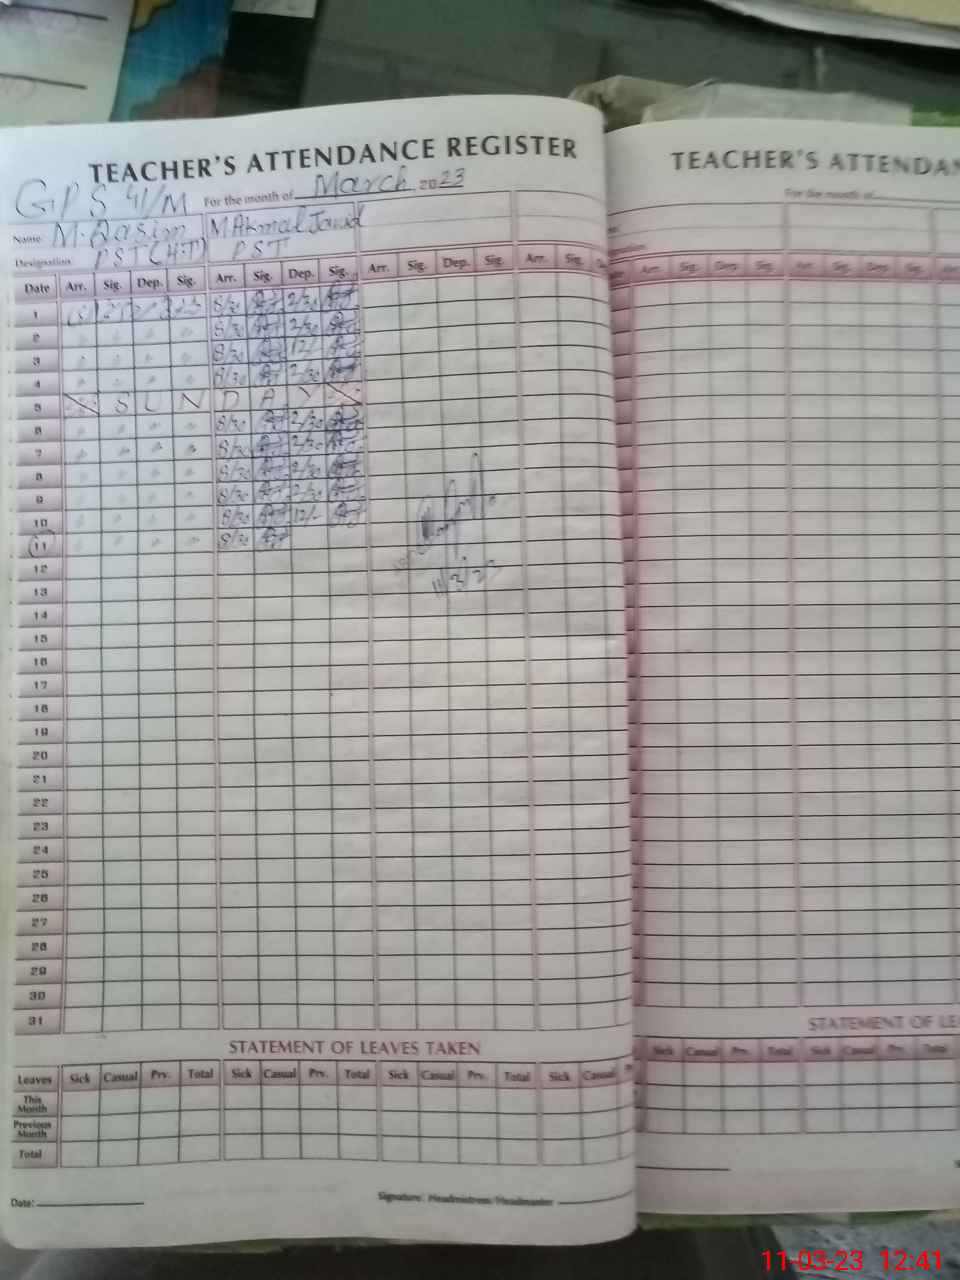 TEACHER'S ATTENDANCE REGISTER
GPS 41/M For the month of March 2023
Name: M. Qasim M Akmal Javid
Designation: PST (H.T) PST
Date Arr. Sig. Dep. Sig. Arr. Sig. Dep. Sig. Arr. Sig. Dep. Sig. Arr. Sig.
1 8/30 2/30
2 8/30 2/30
3 8/30 12/-
4 8/30 2/30
5 S U N D A Y
6 8/30 2/30
7 8/30 2/30
8 8/30 2/30
9 8/30 2/30
10 8/30 12/-
11 8/30
11/3/23
12
13
14
15
16
17
18
19
20
21
22
23
24
25
26
27
28
29
30
31
STATEMENT OF LEAVES TAKEN
Leaves Sick Casual Prv. Total Sick Casual Prv. Total Sick Casual Prv. Total Sick Casual
This Month
Previous Month
Total
Date: Signature: Headmistress/Headmaster
TEACHER'S ATTENDAN
For the month of
Arr. Sig. Dep. Sig. Arr. Sig. Dep. Sig.
STATEMENT OF LE
Sick Casual Prv. Total Sick Casual Prv. Total
11-03-23 12:41